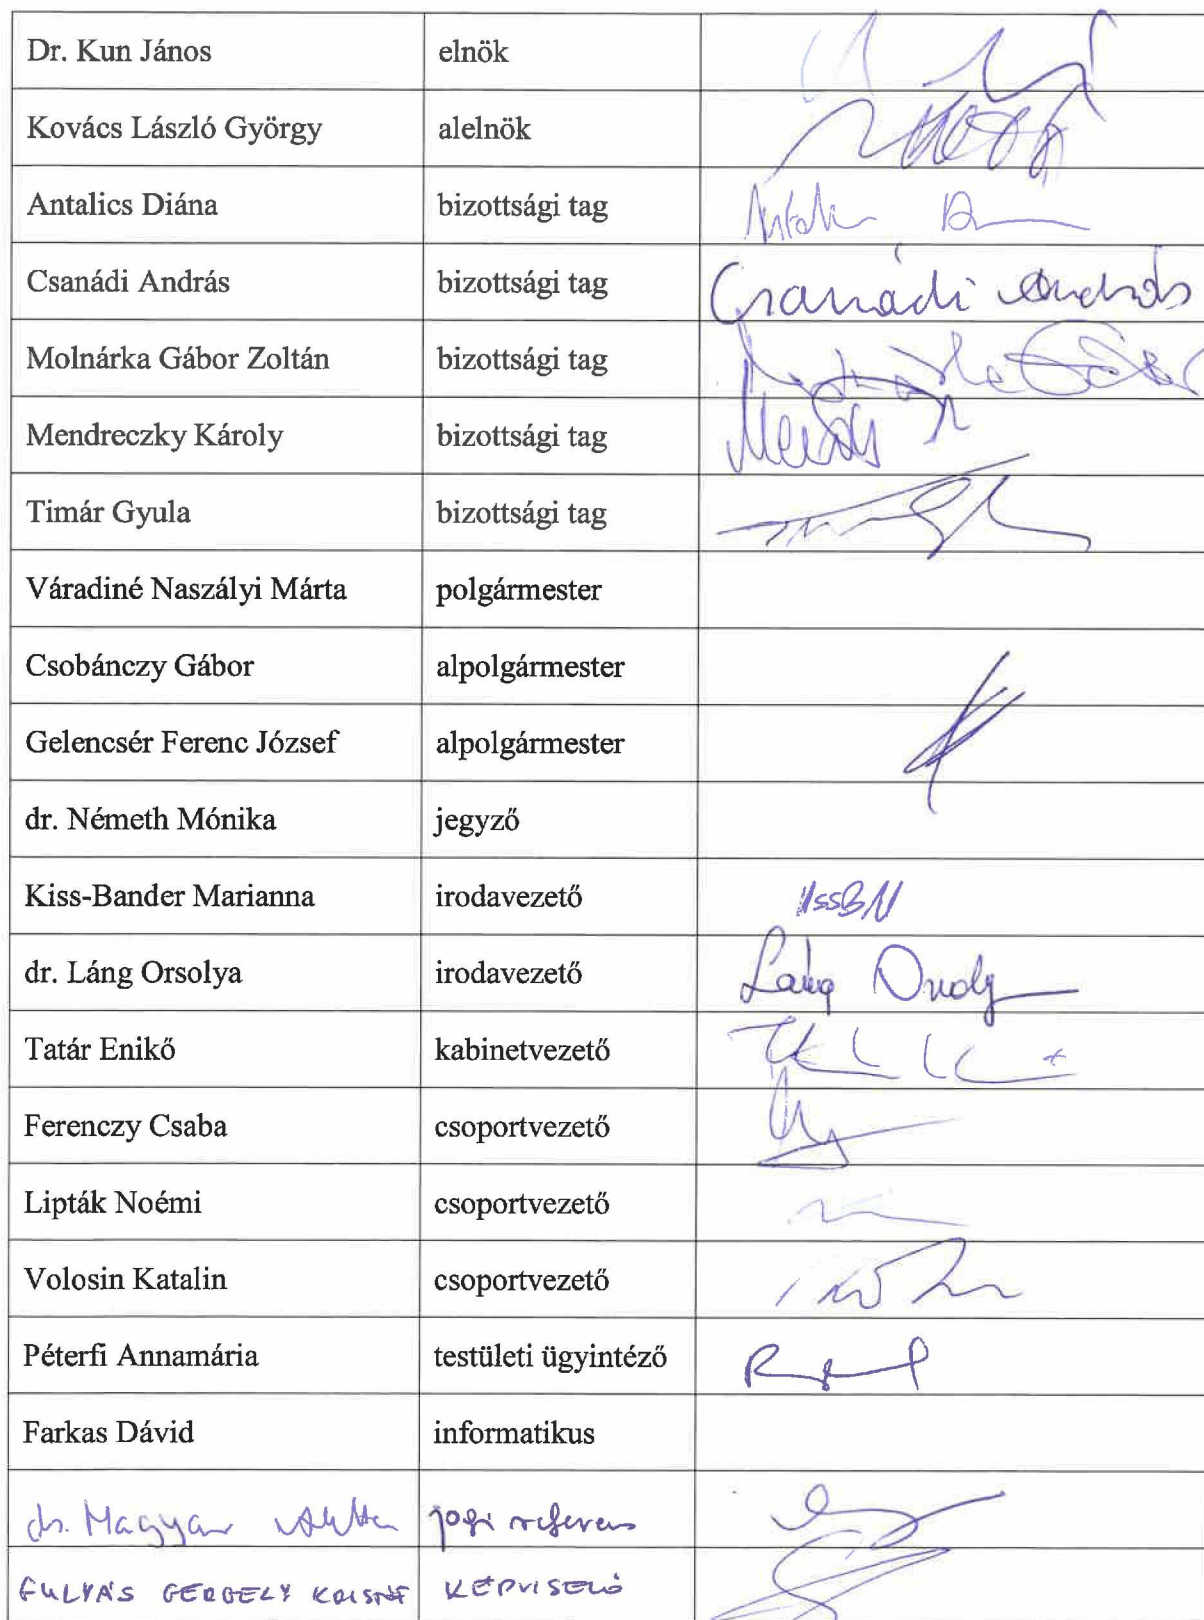 Dr. Kun János elnök
Kovács László György alelnök
Antalics Diána bizottsági tag
Csanádi András bizottsági tag Csanádi András
Molnárka Gábor Zoltán bizottsági tag
Mendreczky Károly bizottsági tag
Timár Gyula bizottsági tag
Váradiné Naszályi Márta polgármester
Csobánczy Gábor alpolgármester
Gelencsér Ferenc József alpolgármester
dr. Németh Mónika jegyző
Kiss-Bander Marianna irodavezető
dr. Láng Orsolya irodavezető Láng Orsolya
Tatár Enikő kabinetvezető
Ferenczy Csaba csoportvezető
Lipták Noémi csoportvezető
Volosin Katalin csoportvezető
Péterfi Annamária testületi ügyintéző
Farkas Dávid informatikus
dr. Magyar jogi referens
GULYÁS GERGELY KRISTÓF KÉPVISELŐ